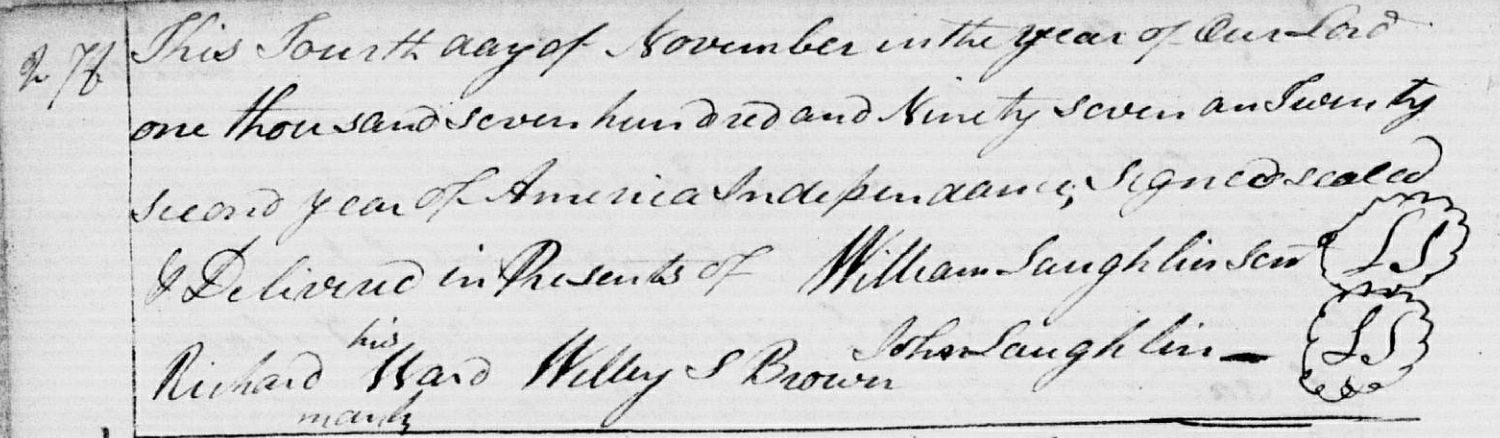 This Fourth day of November in the year of Our Lord
one thousand seven hundred and Ninety seven an Twenty
second year of America Independance, Signed sealed
& Delivered in Presents of William Laughlin Senr LS
his
Richard Ward Willey S Brown John Laughlin LS
mark